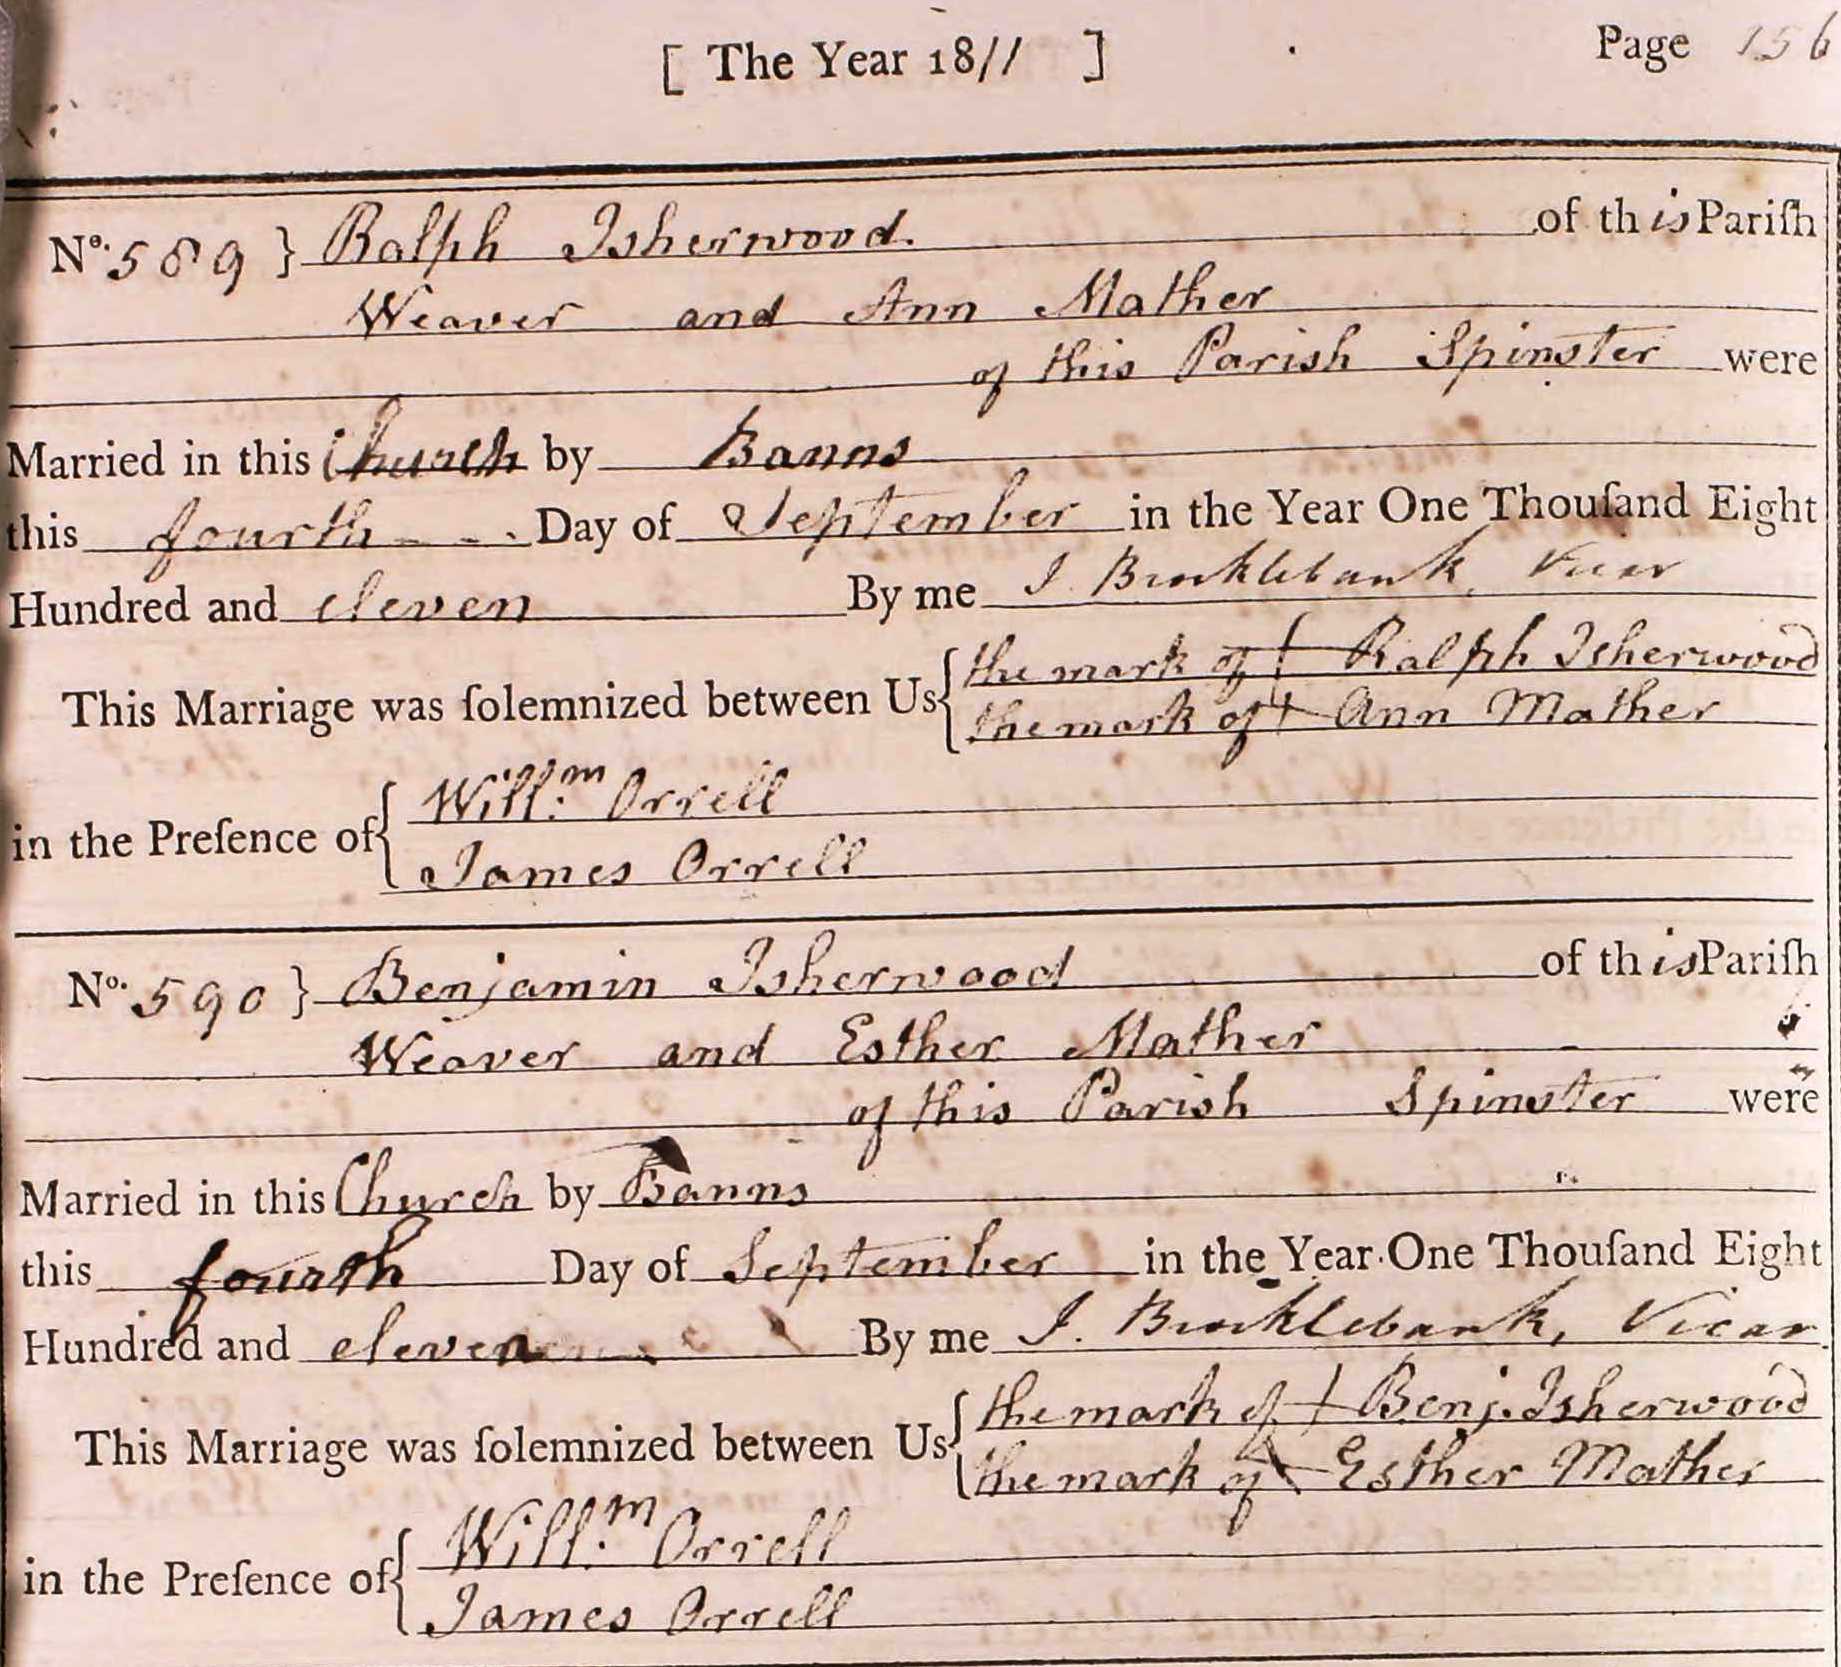 [ The Year 1811 ] Page 156
No. 589 } Ralph Isherwood. of this Pariſh
Weaver and Ann Mather
of this Parish Spinster were
Married in this Church by Banns
this fourth Day of September in the Year One Thouſand Eight
Hundred and eleven By me J. Brocklebank, Vicar
This Marriage was ſolemnized between Us { the mark of + Ralph Isherwood
the mark of + Ann Mather
in the Preſence of { Will.m Orrell
James Orrell
No. 590 } Benjamin Isherwood of this Pariſh
Weaver and Esther Mather
of this Parish Spinster were
Married in this Church by Banns
this fourth Day of September in the Year One Thouſand Eight
Hundred and eleven By me J. Brocklebank, Vicar
This Marriage was ſolemnized between Us { the mark of + Benj. Isherwood
the mark of X Esther Mather
in the Preſence of { Will.m Orrell
James Orrell